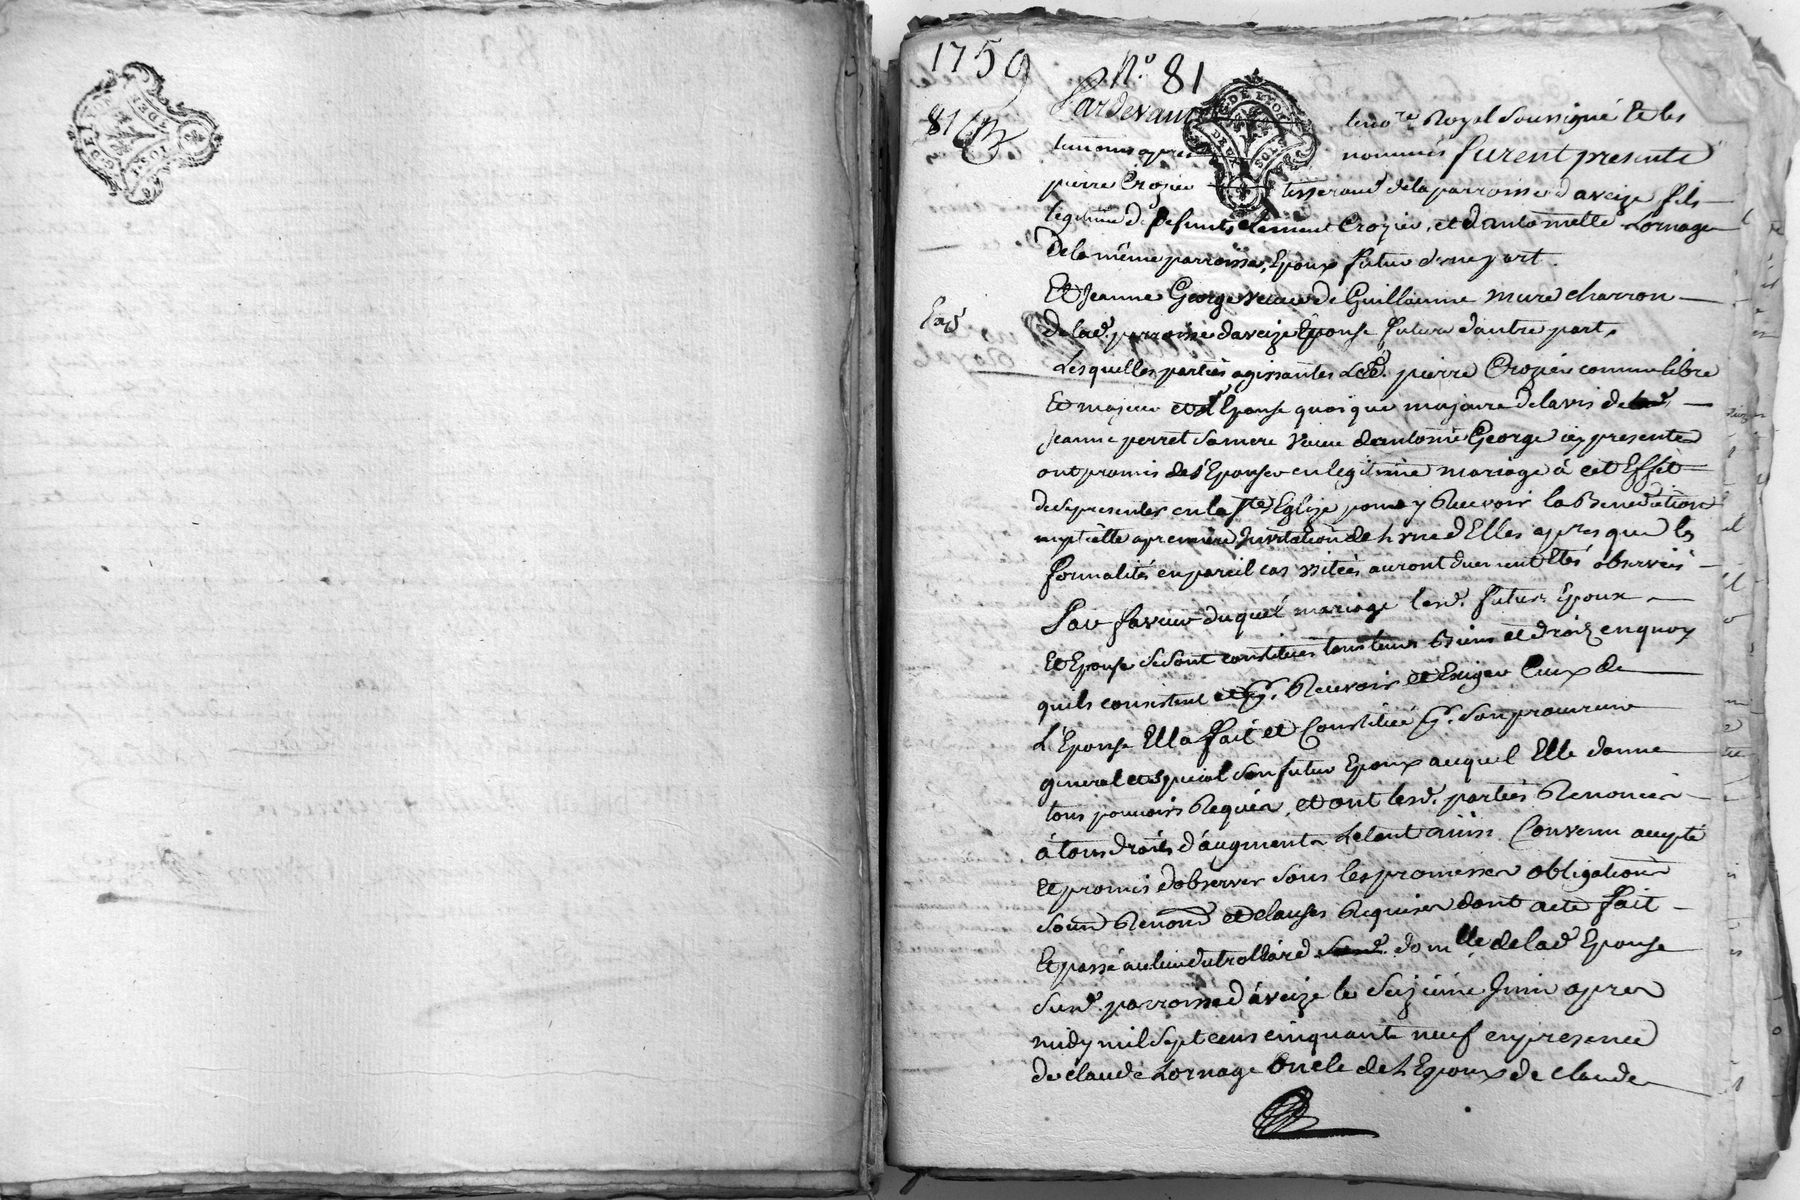 1759
N.º 81
81
Pardevant le no.re Royal soussigné Et les
temoins apres nommés furent presents
pierre Crozier tisserand de la parroisse d'aveize fils
legitime de defunts Clement Crozier, et d'antoinette Lornage
De la même parroisse, Epoux futur d'une part.
Et Jeanne George veuve de Guillaume mure charron
De lad. parroisse d'aveize Epouse future d'autre part,
Lesquelles parties agissantes Led. pierre Crozier comme libre
Et majeur et l'Epouse quoique majeure de lavis de
Jeanne perret sa mere veuve d'antoine George icy presente
ont promis de s'Epouser en legitime mariage á cet Effét
de se presenter en la ste Eglize pour y Recevoir la Benediction
nuptialle a premiere Invitation de l'une d'Elles apres que les
formalités en pareil cas usitées auront duement Etés observées
En faveur duquel mariage lesd. futurs Epoux
Et Epouse se sont constitués tous leurs Biens et droits en quoy
quils consistent et pr. Recevoir et Exiger Ceux de
L'Epouse Ell a fait et Constitué pr. son procureur
general et special son futur Epoux auquel Elle donne
tous pouvoirs Requis, et ont lesd. parties Renoncé
á tous droits d'augment Le tout ainsi Convenu accepté
Et promis d'observer sous les promesses obligations
soum Renond et clauses Requises dont acte fait
Et passé au lieu du trollard dom.lle de lad Epouse
susd. parroisse d'aveize le Seizieme Juin apres
midy mil sept cens cinquante neuf en presence
de claude Lornage Oncle de l'Epoux de claude